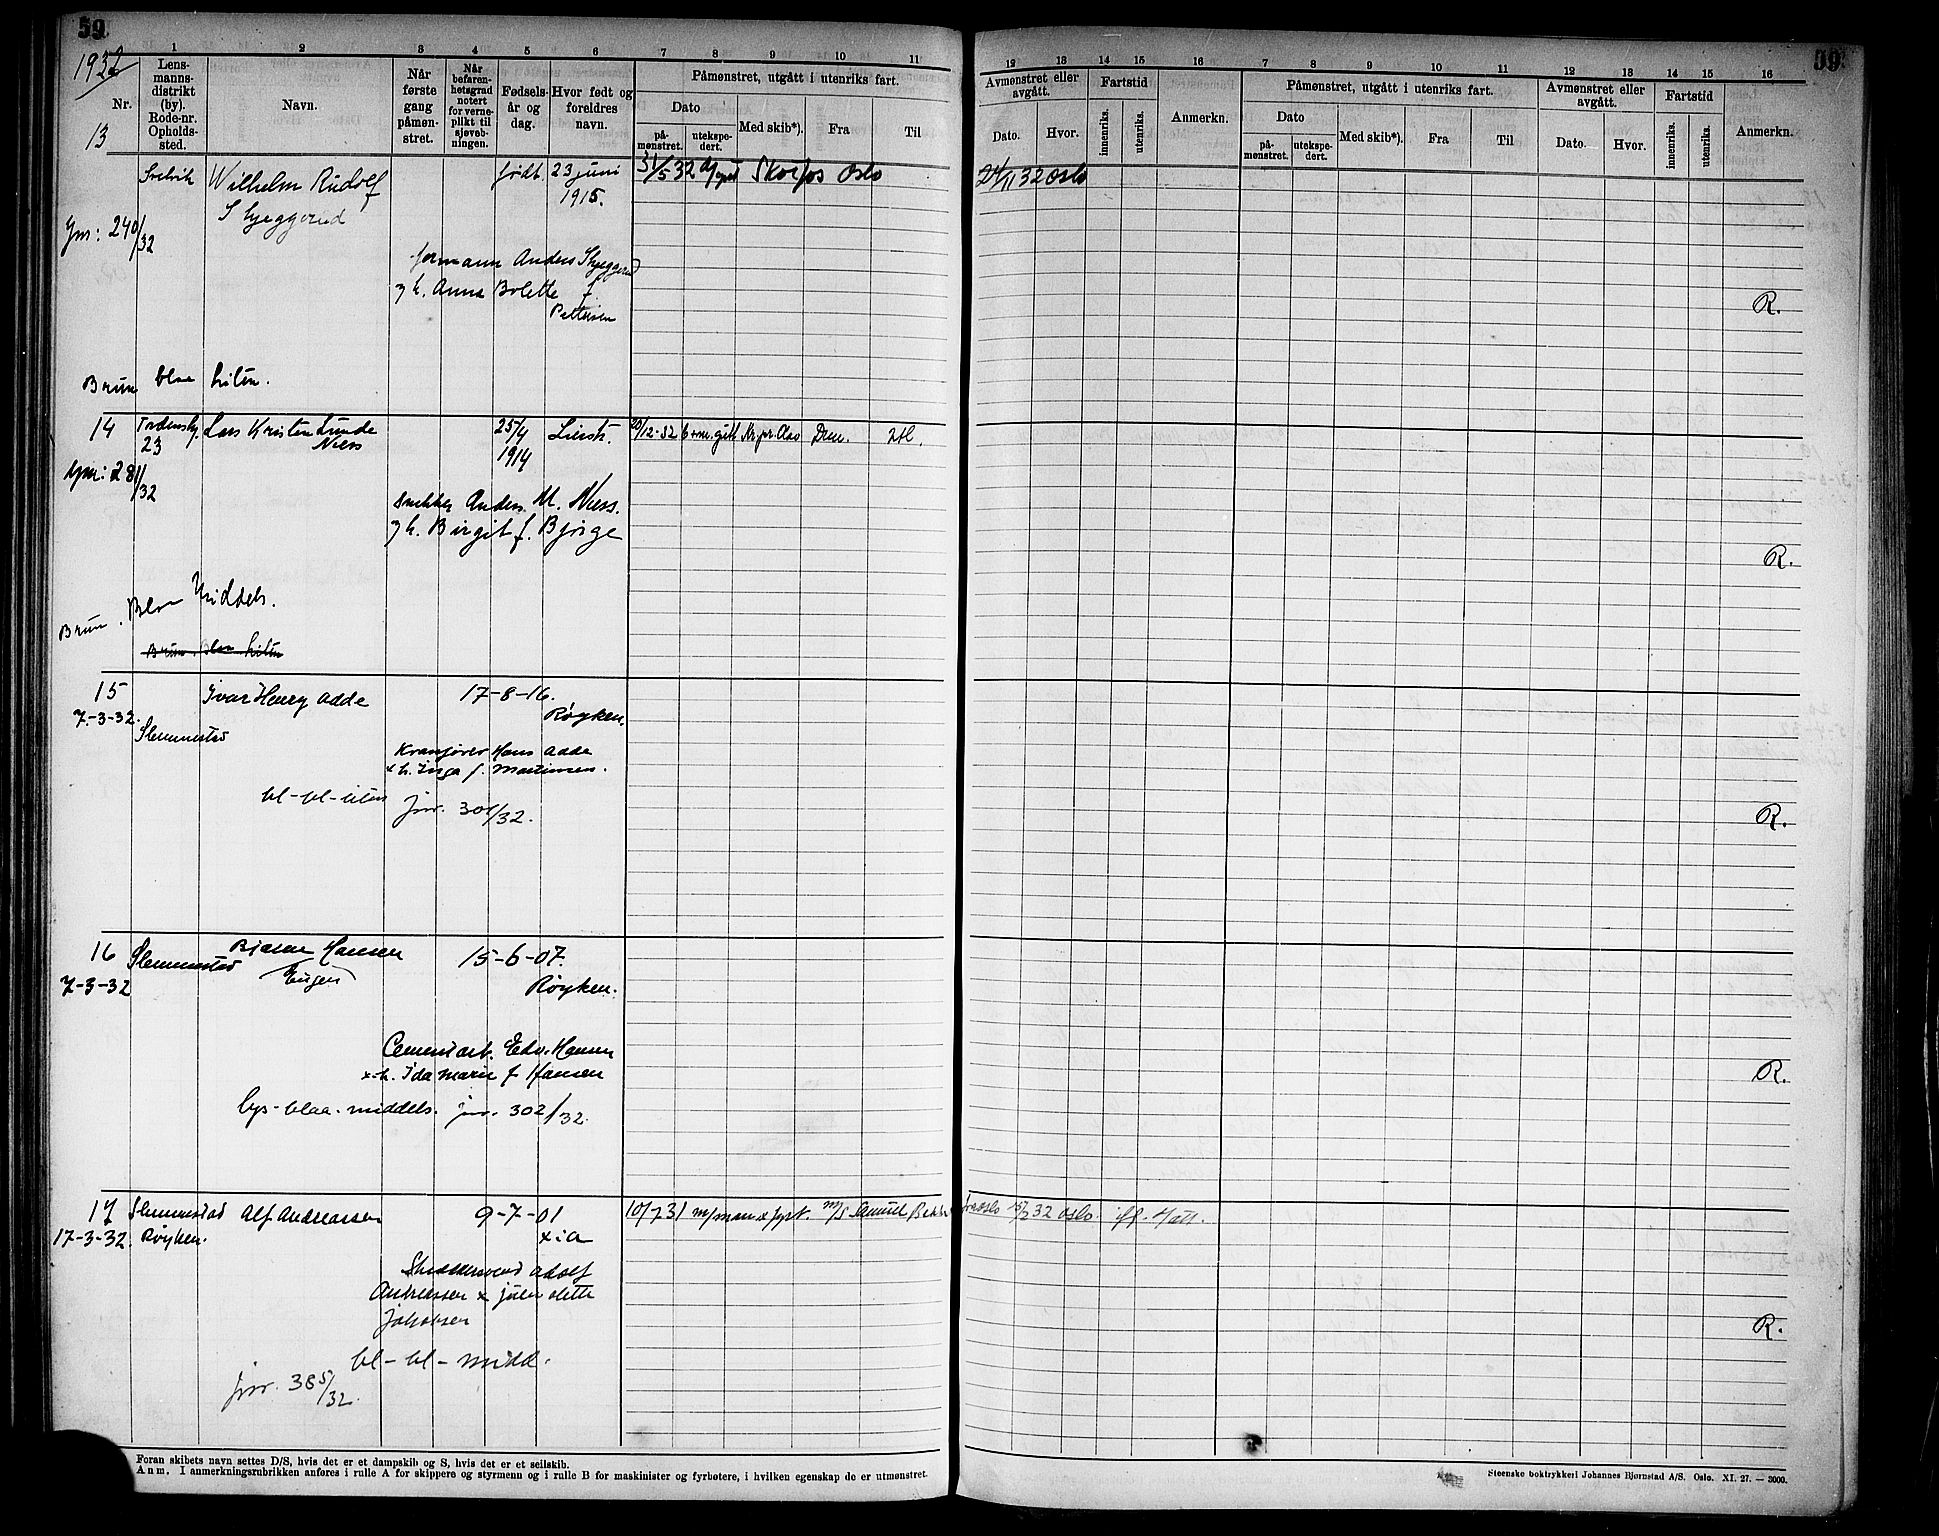 59.
1932
1 2 3 4 5 6 7 8 9 10 11
Nr.
Lens-
manns-
distrikt
(by).
Rode-nr.
Opholds-
sted.
Navn.
Når
første
gang
påmøn-
stret.
Når
befaren-
hetsgrad
notert
for verne-
plikt til
sjøveb-
ningen.
Fødsels-
år og
dag.
Hvor født og
foreldres
navn.
Påmønstret, utgått i utenriks fart.
Dato
på-
mønstret.
utekspe-
dert.
Med skib*).
Fra
Til
13
Svelvik Wilhelm Rudolf født 23 juni 31/5 32 Skoefos Oslo
Skjeggerud 1915.
Jnr: 240/32
formann Anders Skjeggerud
g h. Anna Bolette f.
Pettersen
Brun blaa liten.
14 Tordensk. Lars Kristen Lunde 25/4 Lierstr. 20/12-32 Drm. Utl.
23 Næss 1914
Jnr: 281/32
Snekker Anders M. Næss.
g h. Birgit f. Bjørge
Brun. Blaa Middels.
Brun. Blaa liten
15 Ivar Henry Adde 17-8-16.
7-3-32. Røyken.
Slemmestad
Kranfører Hans Adde
x h. Inga f. Martinsen.
bl-bl-liten jnr. 301/32.
16 Slemmestad Bjarne Hansen 15-6-07.
(Eugen)
7-3-32 Røyken.
Cementarb. Edv. Hansen
x h. Ida Marie f Hansen
lys-blaa-middels. jnr. 302/32.
17 Slemmestad Alf Andreassen 9-7-01 10/7 31 m/s Samuel Bakke
17-3-32. Røyken. x-ia
Adolf
Andreassen x
Jakobsen
bl-bl-midd.
jnr. 385/32.
Foran skibets navn settes D/S, hvis det er et dampskib og S, hvis det er et seilskib.
Anm. I anmerkningsrubrikken anføres i rulle A for skippere og styrmenn og i rulle B for maskinister og fyrbøtere, i hvilken egenskap de er utmønstret.
59.
12 13 14 15 16 7 8 9 10 11 12 13 14 15 16
Avmønstret eller
avgått.
Dato.
Hvor.
Fartstid
innenriks.
utenriks.
Anmerkn.
Påmønstret, utgått i utenriks fart.
Dato
på-
mønstret.
utekspe-
dert.
Med skib*).
Fra
Til
Avmønstret eller
avgått.
Dato.
Hvor.
Fartstid
innenriks.
utenriks.
Anmerkn.
24/11 32 Oslo
R.
R.
R.
R.
32 Oslo.
R.
Steenske boktrykkeri Johannes Bjørnstad A/S. Oslo. XI. 27. — 3000.